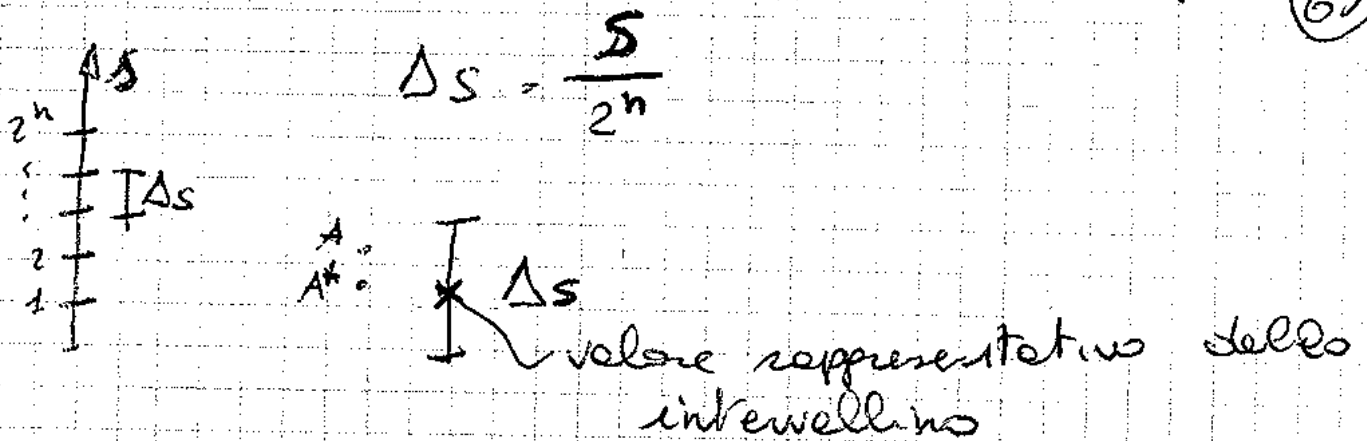 S
ΔS = S / 2^n
2^n
⋮
ΔS
2
1
A .
A* .
ΔS
valore rappresentativo dello
intervallino